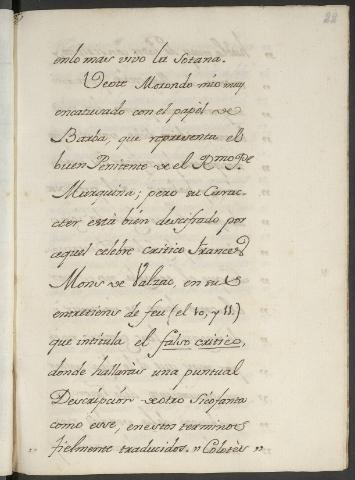 22
en lo mas vivo la Sotana.
Veote Morondo mio muy
encaturado con el papèl de
Barba, que representa el
buen Penitente de el Rmo. Pe.
Murquina; pero su Carac-
cter està bién descifrado por
aquel celebre critico francès
Mons de Valzac, en sus
entretiens de feu (el 10, y 11.)
que intitula el falso critico,
donde hallaràs una puntual
Descripción de otro Sicofanta
como esse, en estos terminos
fielmente traducidos. „ Coletès „